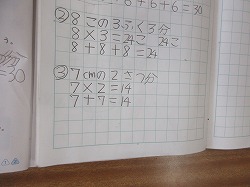 6+6+6=30
② 8この3ふく3分
8×3=24こ 24こ
8+8+8=24
③ 7cmの2さつ分
7×2=14
7+7=14
=30